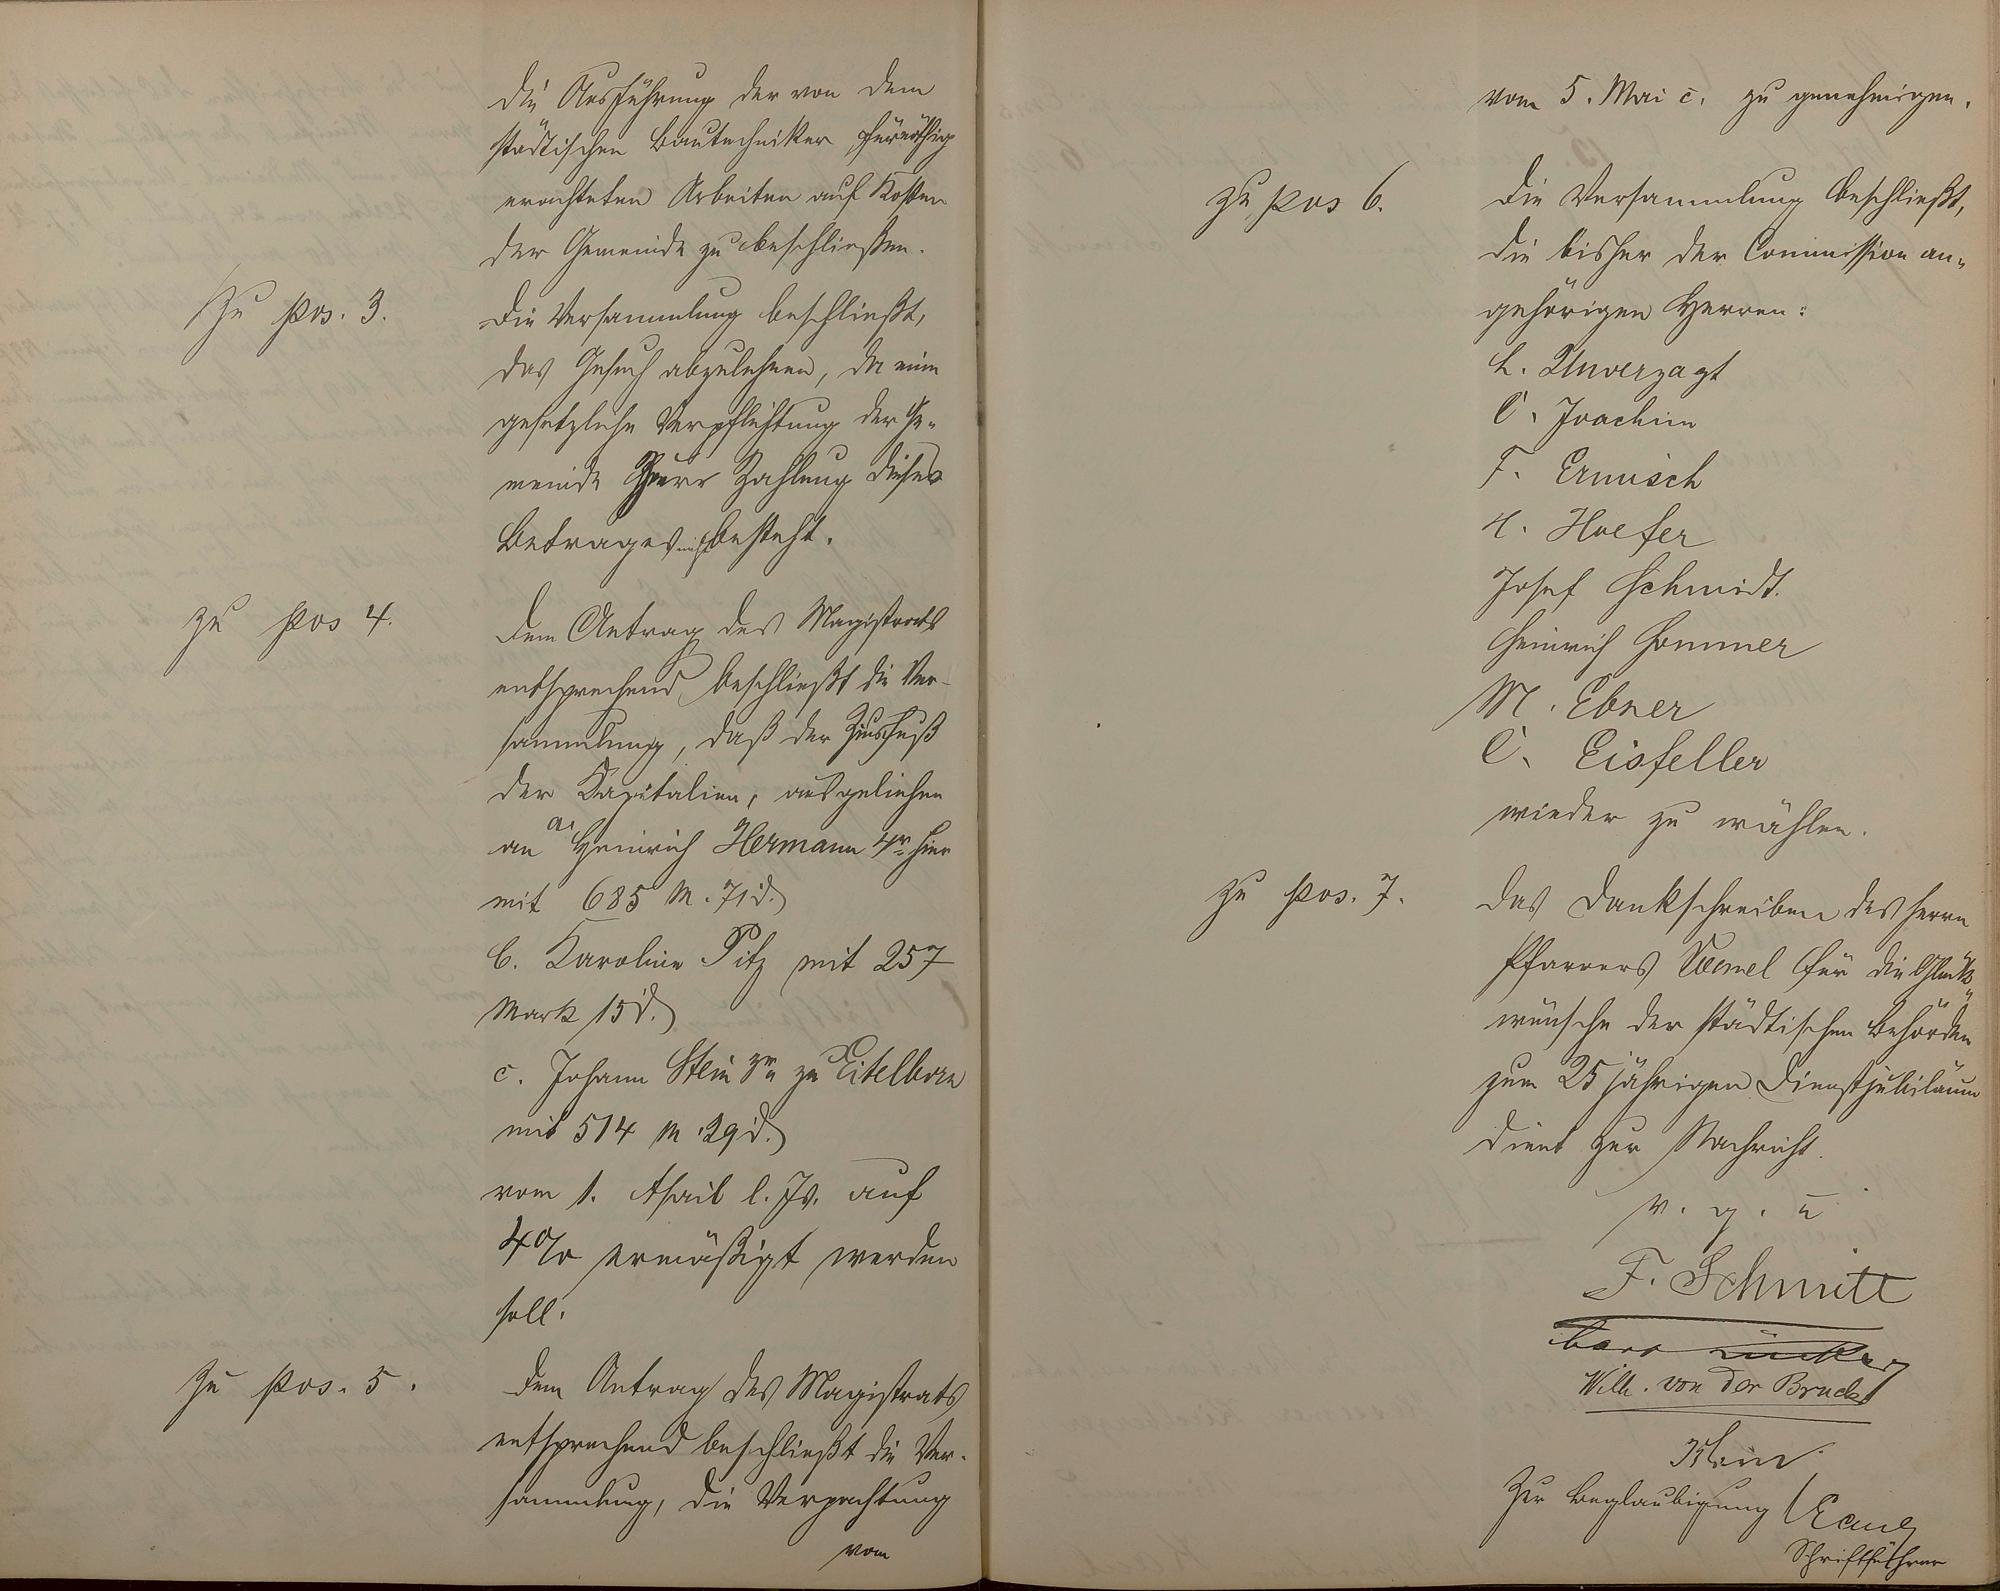 die Ausführung der von dem
städtischen Bautechniker
erachteten Arbeiten auf Kosten
der Gemeinde zu beschließen.
Zu pos. 3.
Die Versammlung beschließt,
das Gesuch abzulehnen, da eine
gesetzliche Verpflichtung der Ge-
meinde zur Zahlung dieses
Betrages nicht besteht.
zu pos 4.
Dem Antrag des Magistrats
entsprechend beschließt die Ver-
sammlung, daß der Zinsfuß
der Kapitalien, ausgeliehen
an a. Heinrich Hermann 4r hier
mit 685 M. 71 d.
b. Karoline Pitz mit 257
Mark 15 d.
c. Johann Stein 3r zu Eitelborn
mit 514 M 29 d.
vom 1. April l. Js. auf
4% ermäßigt werden
soll.
Zu pos. 5.
Dem Antrag des Magistrats
entsprechend beschließt die Ver-
sammlung, die Verpachtung
vom
vom 5. Mai c. zu genehmigen.
zu pos 6.
Die Versammlung beschließt,
die bisher der Commission an-
gehörigen Herren:
L. Unverzagt
C. Joachim
F. Ermisch
H. Hoefer
Josef Schmidt.
Heinrich Sommer
M. Ebner
C. Eisfeller
wieder zu wählen.
Zu pos. 7.
Das Dankschreiben des Herrn
Pfarrers für die Glück-
wünsche der städtischen Behörden
zum 25 jährigen Dienstjubiläum
dient zur Nachricht.
v. g. u
F. Schmitt
Wilh. von der Bruck
Klein
Zur Beglaubigung
Schriftführer